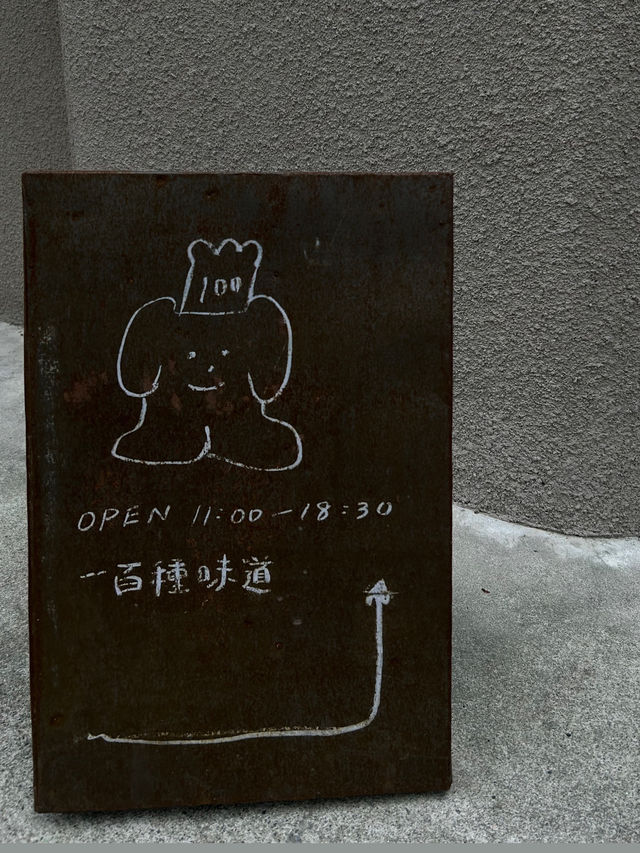 100
OPEN 11:00-18:30
一百種味道